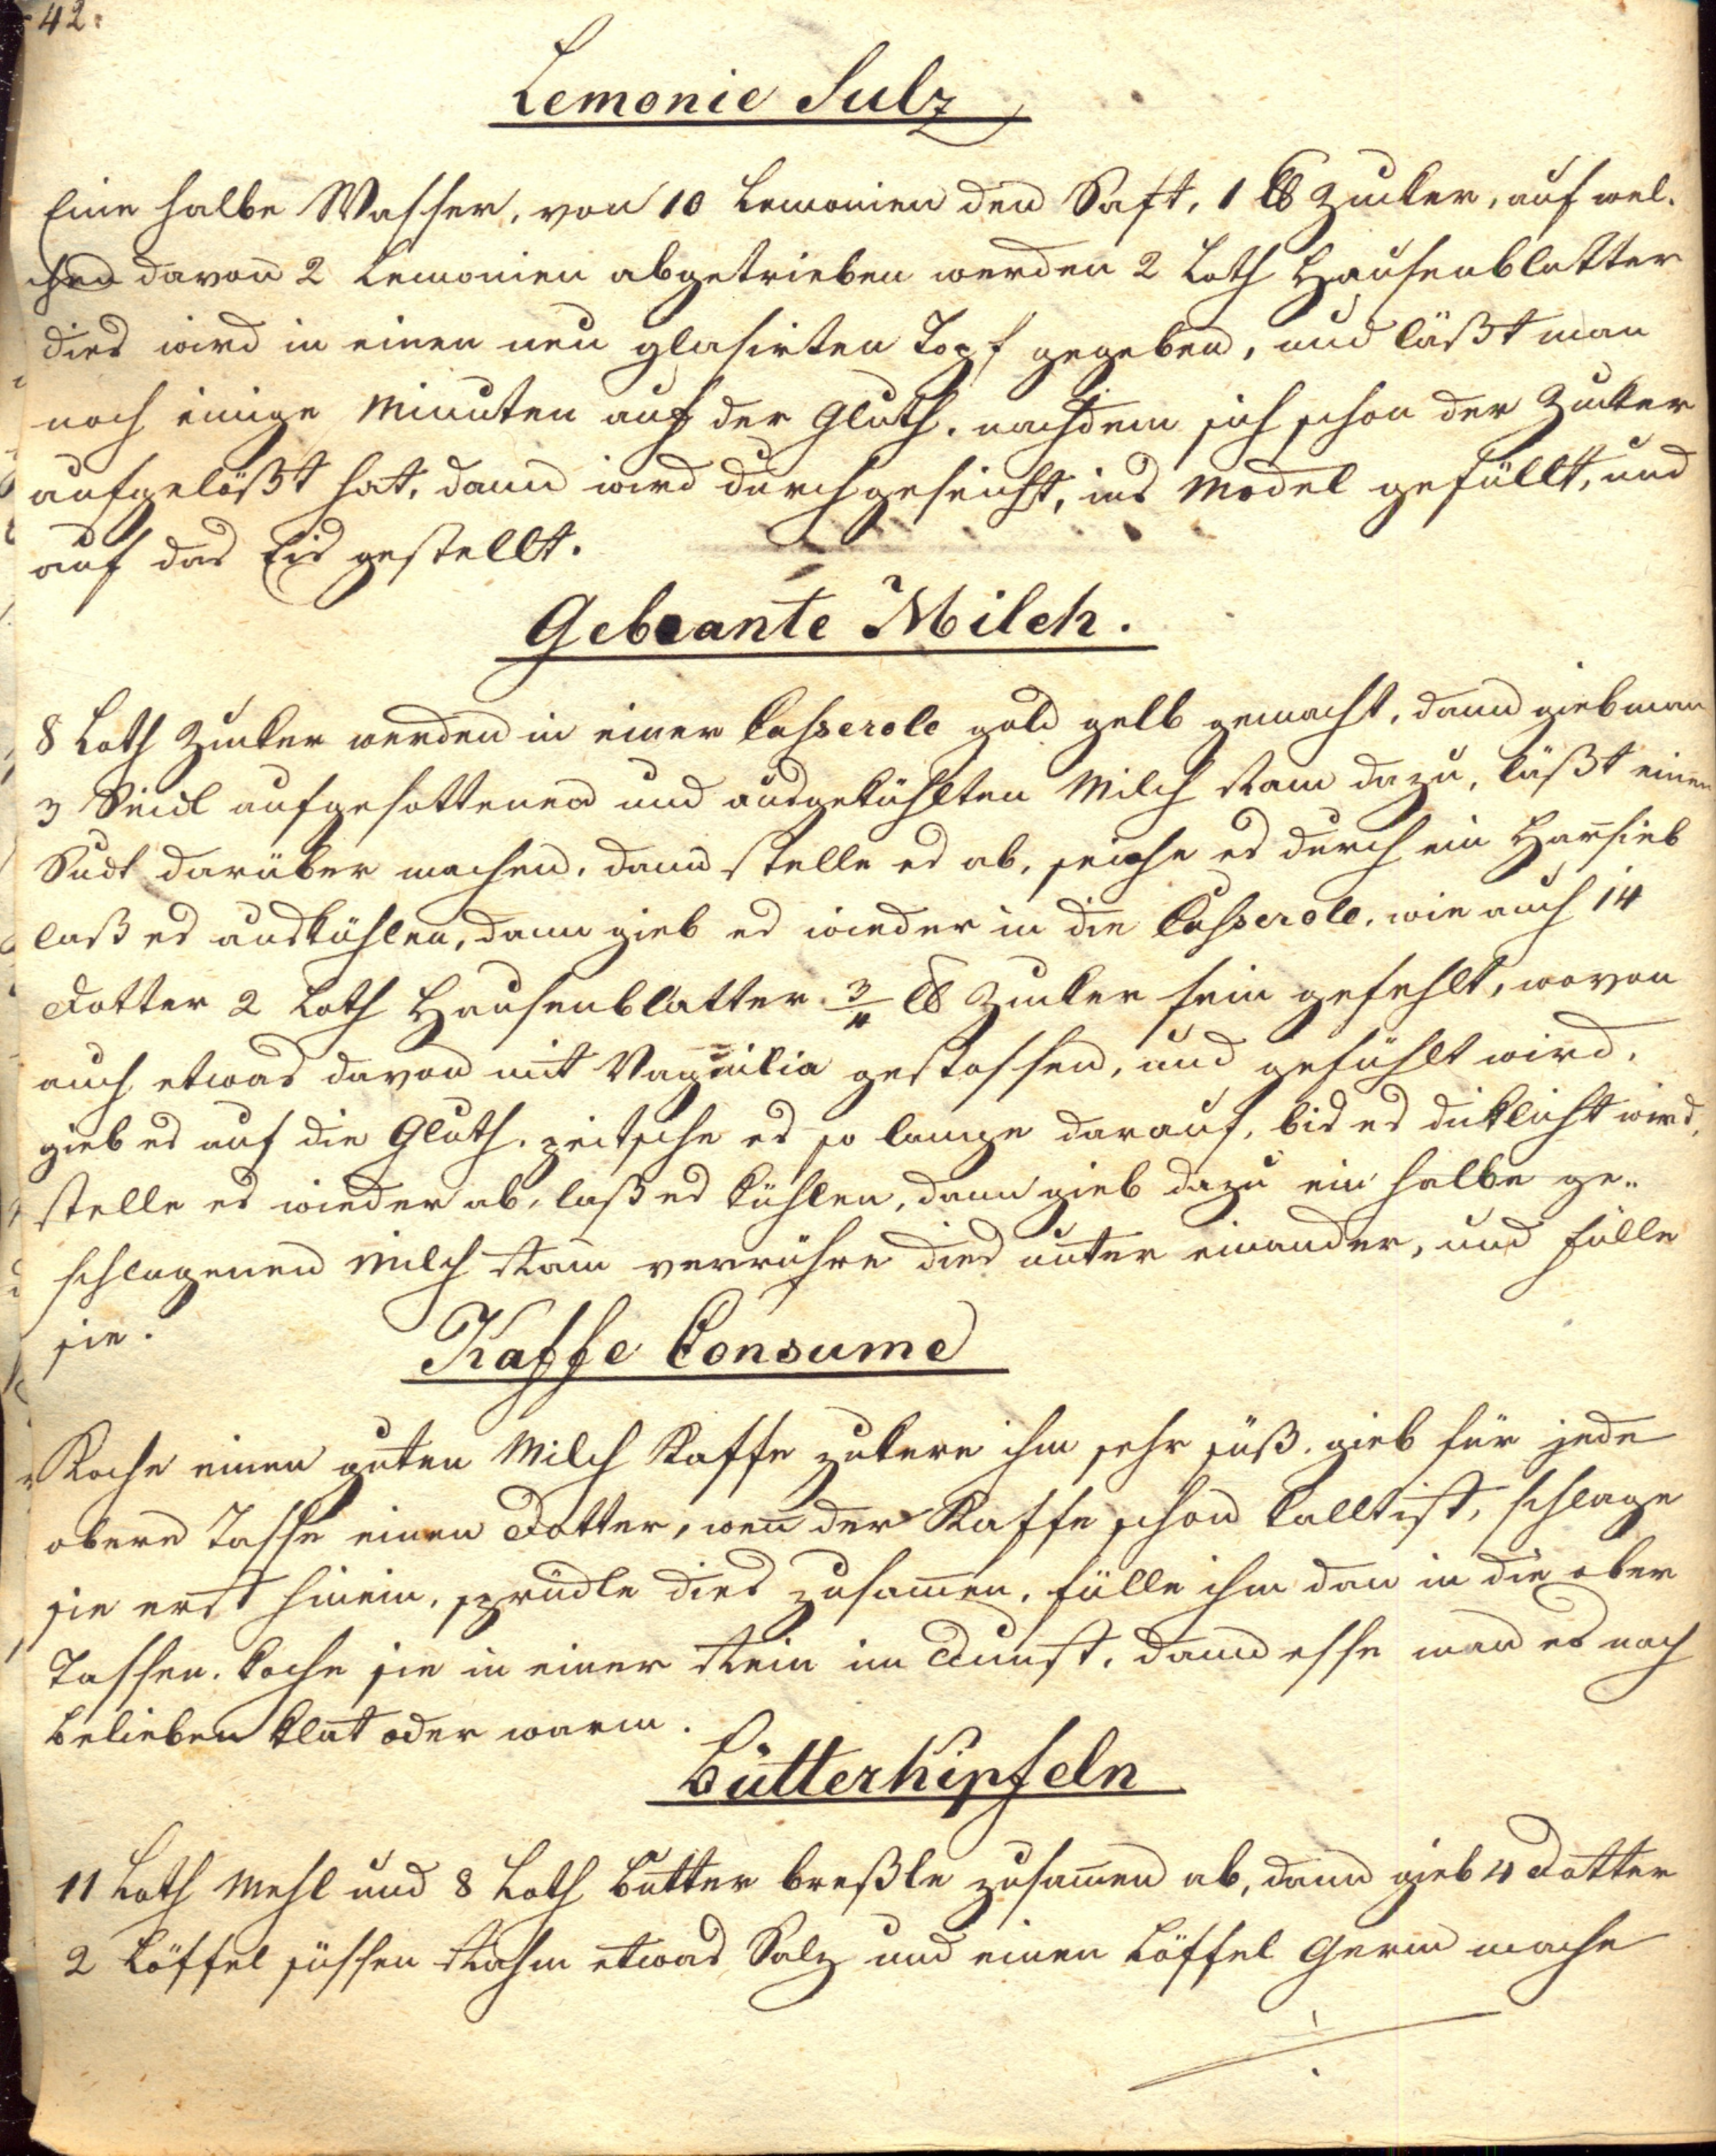 42.
Lemonie Sulz
Eine halbe Wasser, von 10 Lemonien den Saft, 1 ℔ Zucker, auf wel-
chen davon 2 Lemonien abgetrieben werden 2 Loth Hausenblatter
dies wird in einen neu glasirten Topf gegeben, und läßt man
noch einige Minuten auf der Gluth. nachdem sich schon der Zucker
aufgelößt hat, dann wird durchgeseicht, ins Model gefüllt, und
auf das Eis gestellt.
Gebrante Milch.
8 Loth Zucker werden in einer Casserole gold gelb gemacht, dann gieb man
3 Seidl aufgesottenen und ausgekühlten Milch Ram dazu, läßt einen
Sudt darüber machen, dann stelle es ab, seiche es durch ein Harsieb
laß es auskühlen, dann gieb es wieder in die Casserole, wie auch 14
Dotter 2 Loth Hausenblatter 3/4 ℔ Zucker fein gefehlt, wovon
auch etwas davon mit gestossen, und gefühlt wird.
gieb es auf die Gluth. peitsche es so lange darauf, bis es dicklicht wird,
stelle es wieder ab, laß es kühlen, dann gieb dazu ein halbe ge-
schlagenen Milch Ram verrühre dies unter einander, und fülle
sie.
Kaffe Consume
Koche einen guten Milch Kaffe zukere ihm sehr süß. gieb für jede
obere Tasse einen Dotter, wen̄ der Kaffe schon kallt ist, schlage
sie erst hinein, sprudle dies zusam̄en, fülle ihm dan in die ober
Tassen. koche sie in einer Rein im Dunst, dann esse man es nach
belieben klat oder warm.
Butterkipfeln
11 Loth Mehl und 8 Loth Butter breßle zusam̄en ab, dann gieb 4 Dotter
2 Löffel süssen Rahm etwas Salz und einen Löffel Germ mache